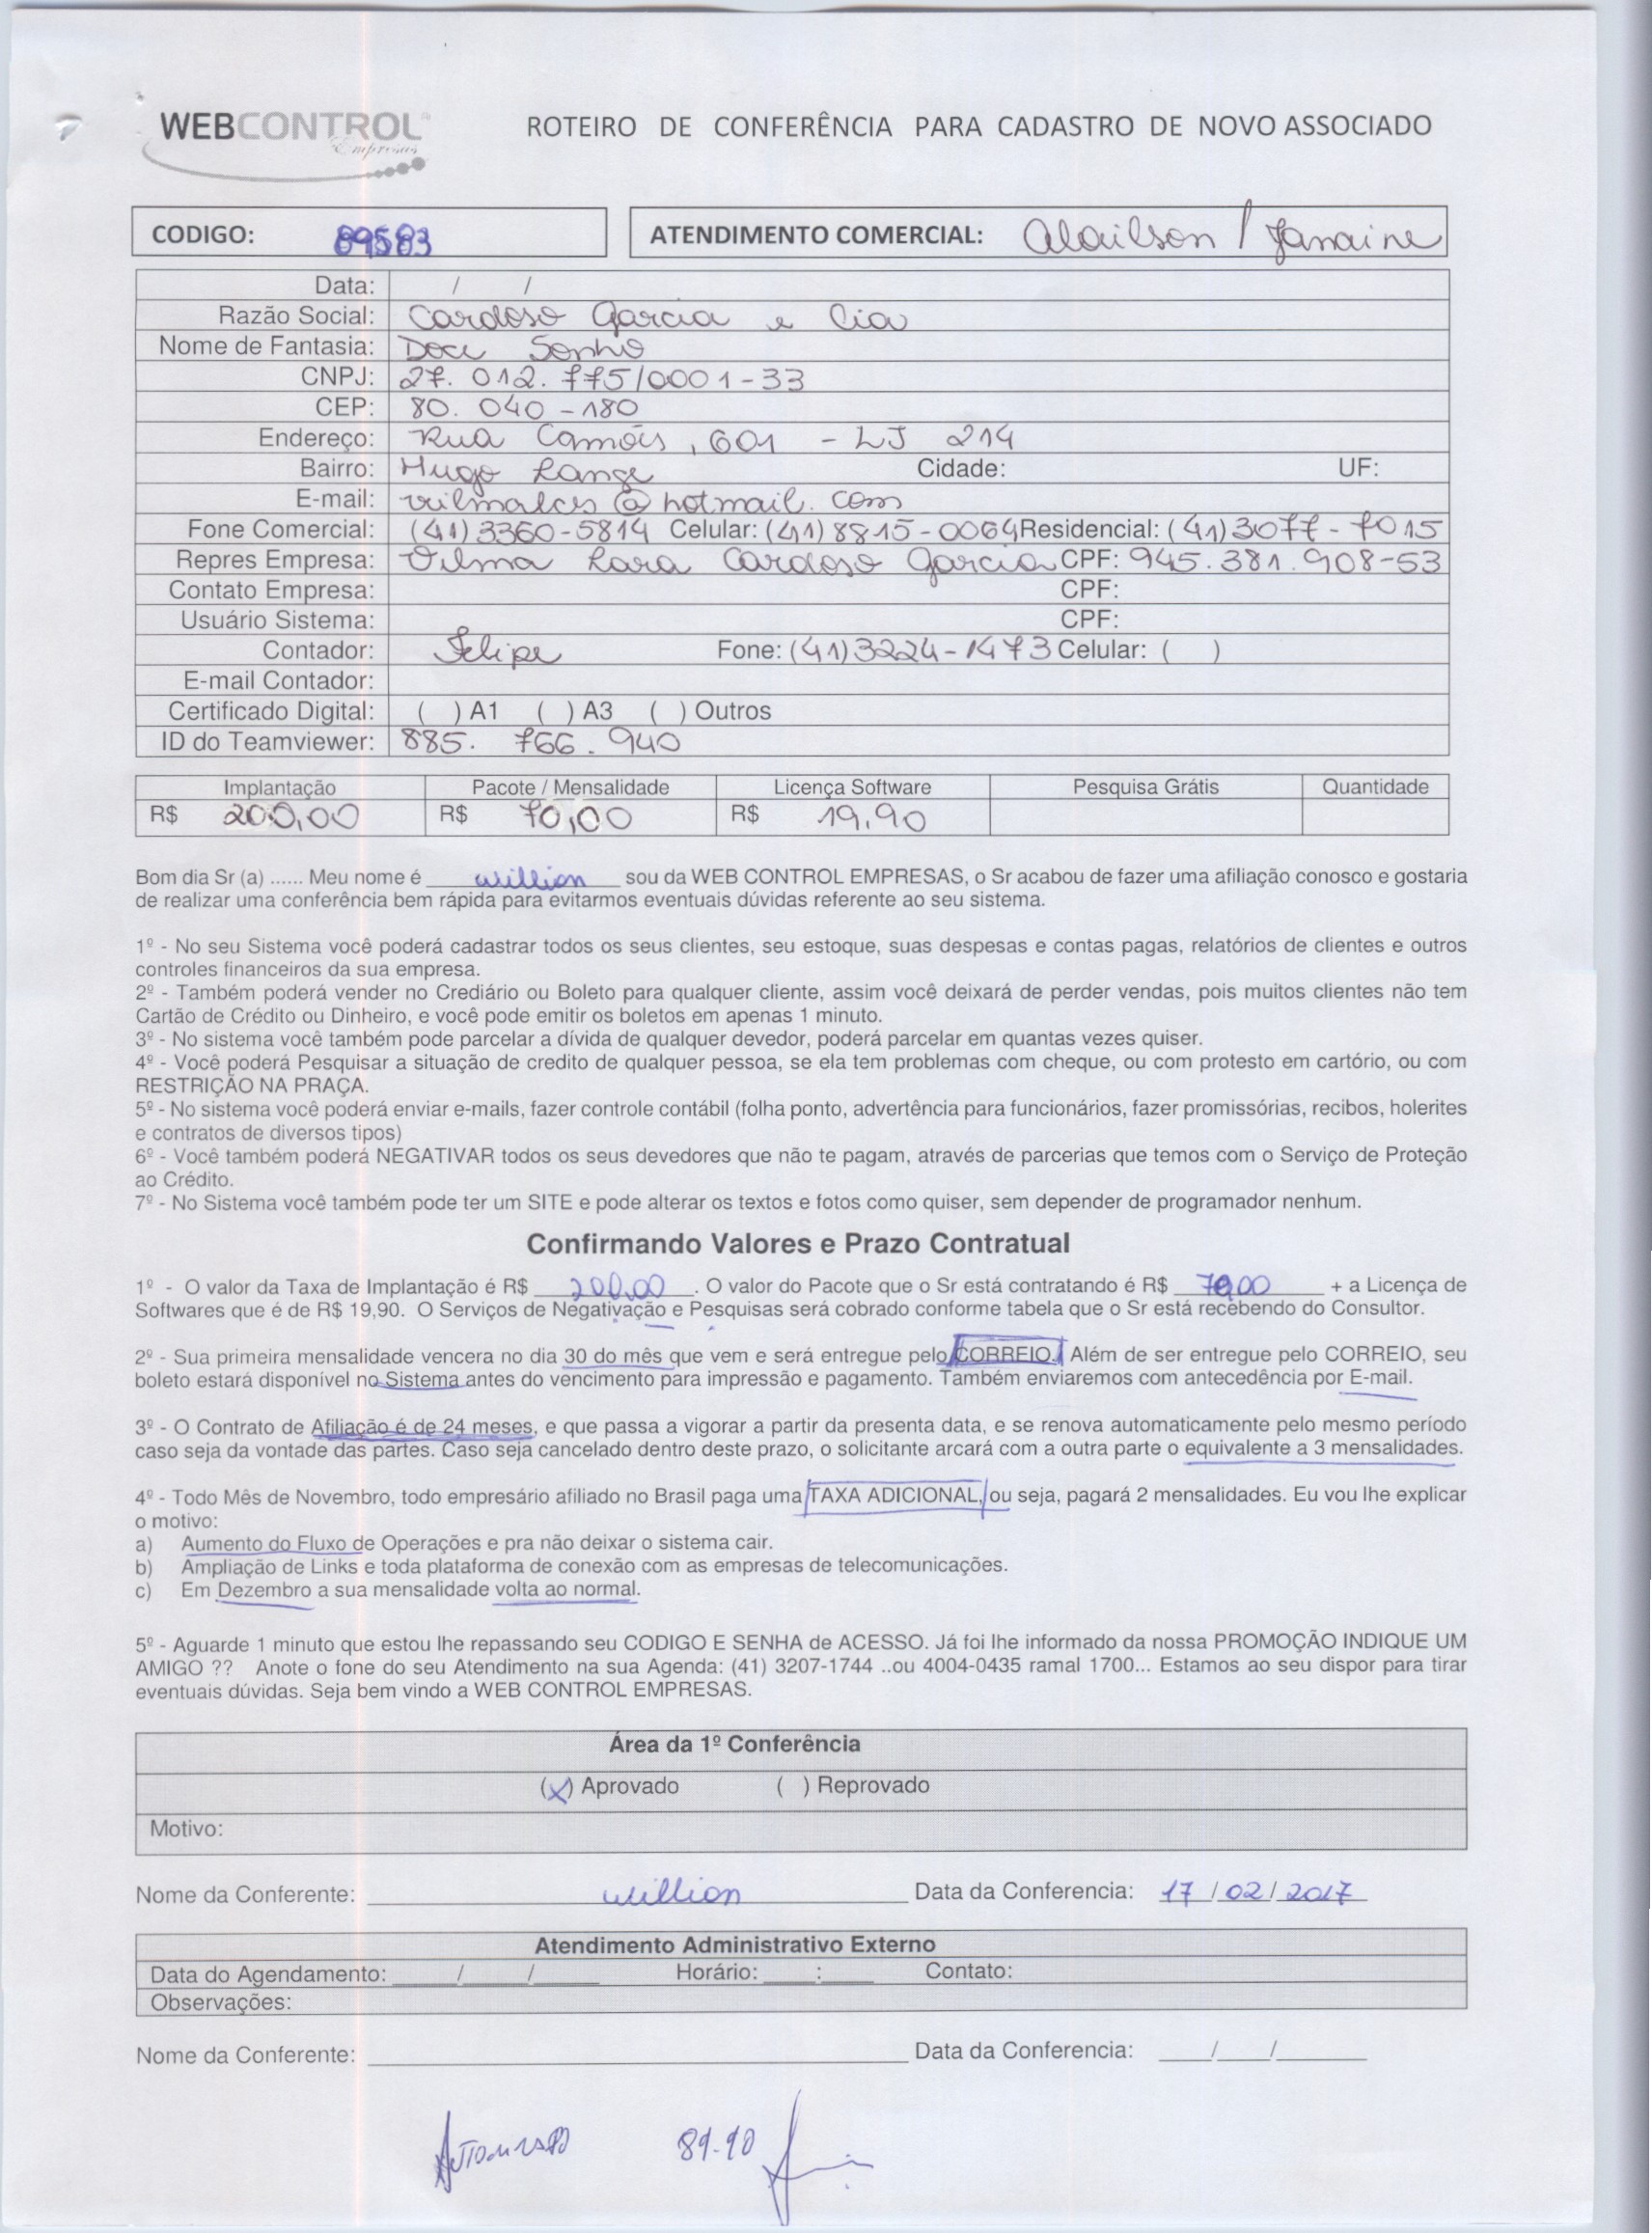 WEBCONTROL
Empresas
ROTEIRO DE CONFERÊNCIA PARA CADASTRO DE NOVO ASSOCIADO
CODIGO: 89583
ATENDIMENTO COMERCIAL: Alailson / Janaine
Data: / /
Razão Social: Cardoso Garcia e Cia
Nome de Fantasia: Doce Sonho
CNPJ: 27.012.775/0001-33
CEP: 80.040-180
Endereço: Rua Camões, 601 - LJ 214
Bairro: Hugo Lange Cidade: UF:
E-mail: vilmalcs@hotmail.com
Fone Comercial: (41) 3360-5814 Celular: (41) 8815-0064 Residencial: (41) 3077-7015
Repres Empresa: Vilma Lara Cardoso Garcia CPF: 945.381.908-53
Contato Empresa: CPF:
Usuário Sistema: CPF:
Contador: Felipe Fone: (41) 3224-1473 Celular: ( )
E-mail Contador:
Certificado Digital: ( ) A1 ( ) A3 ( ) Outros
ID do Teamviewer: 885. 766. 940
Implantação Pacote / Mensalidade Licença Software Pesquisa Grátis Quantidade
R$ 200,00 R$ 70,00 R$ 19,90
Bom dia Sr (a) ...... Meu nome é willian sou da WEB CONTROL EMPRESAS, o Sr acabou de fazer uma afiliação conosco e gostaria
de realizar uma conferência bem rápida para evitarmos eventuais dúvidas referente ao seu sistema.
1º - No seu Sistema você poderá cadastrar todos os seus clientes, seu estoque, suas despesas e contas pagas, relatórios de clientes e outros
controles financeiros da sua empresa.
2º - Também poderá vender no Crediário ou Boleto para qualquer cliente, assim você deixará de perder vendas, pois muitos clientes não tem
Cartão de Crédito ou Dinheiro, e você pode emitir os boletos em apenas 1 minuto.
3º - No sistema você também pode parcelar a dívida de qualquer devedor, poderá parcelar em quantas vezes quiser.
4º - Você poderá Pesquisar a situação de credito de qualquer pessoa, se ela tem problemas com cheque, ou com protesto em cartório, ou com
RESTRIÇÃO NA PRAÇA.
5º - No sistema você poderá enviar e-mails, fazer controle contábil (folha ponto, advertência para funcionários, fazer promissórias, recibos, holerites
e contratos de diversos tipos)
6º - Você também poderá NEGATIVAR todos os seus devedores que não te pagam, através de parcerias que temos com o Serviço de Proteção
ao Crédito.
7º - No Sistema você também pode ter um SITE e pode alterar os textos e fotos como quiser, sem depender de programador nenhum.
Confirmando Valores e Prazo Contratual
1º - O valor da Taxa de Implantação é R$ 200,00. O valor do Pacote que o Sr está contratando é R$ 70,00 + a Licença de
Softwares que é de R$ 19,90. O Serviços de Negativação e Pesquisas será cobrado conforme tabela que o Sr está recebendo do Consultor.
2º - Sua primeira mensalidade vencera no dia 30 do mês que vem e será entregue pelo CORREIO. Além de ser entregue pelo CORREIO, seu
boleto estará disponível no Sistema antes do vencimento para impressão e pagamento. Também enviaremos com antecedência por E-mail.
3º - O Contrato de Afiliação é de 24 meses, e que passa a vigorar a partir da presenta data, e se renova automaticamente pelo mesmo período
caso seja da vontade das partes. Caso seja cancelado dentro deste prazo, o solicitante arcará com a outra parte o equivalente a 3 mensalidades.
4º - Todo Mês de Novembro, todo empresário afiliado no Brasil paga uma TAXA ADICIONAL, ou seja, pagará 2 mensalidades. Eu vou lhe explicar
o motivo:
a) Aumento do Fluxo de Operações e pra não deixar o sistema cair.
b) Ampliação de Links e toda plataforma de conexão com as empresas de telecomunicações.
c) Em Dezembro a sua mensalidade volta ao normal.
5º - Aguarde 1 minuto que estou lhe repassando seu CODIGO E SENHA de ACESSO. Já foi lhe informado da nossa PROMOÇÃO INDIQUE UM
AMIGO ?? Anote o fone do seu Atendimento na sua Agenda: (41) 3207-1744 ..ou 4004-0435 ramal 1700... Estamos ao seu dispor para tirar
eventuais dúvidas. Seja bem vindo a WEB CONTROL EMPRESAS.
Área da 1º Conferência
(x) Aprovado ( ) Reprovado
Motivo:
Nome da Conferente: willian Data da Conferencia: 17 / 02 / 2017
Atendimento Administrativo Externo
Data do Agendamento: / / Horário: : Contato:
Observações:
Nome da Conferente: Data da Conferencia: / /
Autorizado 89.90